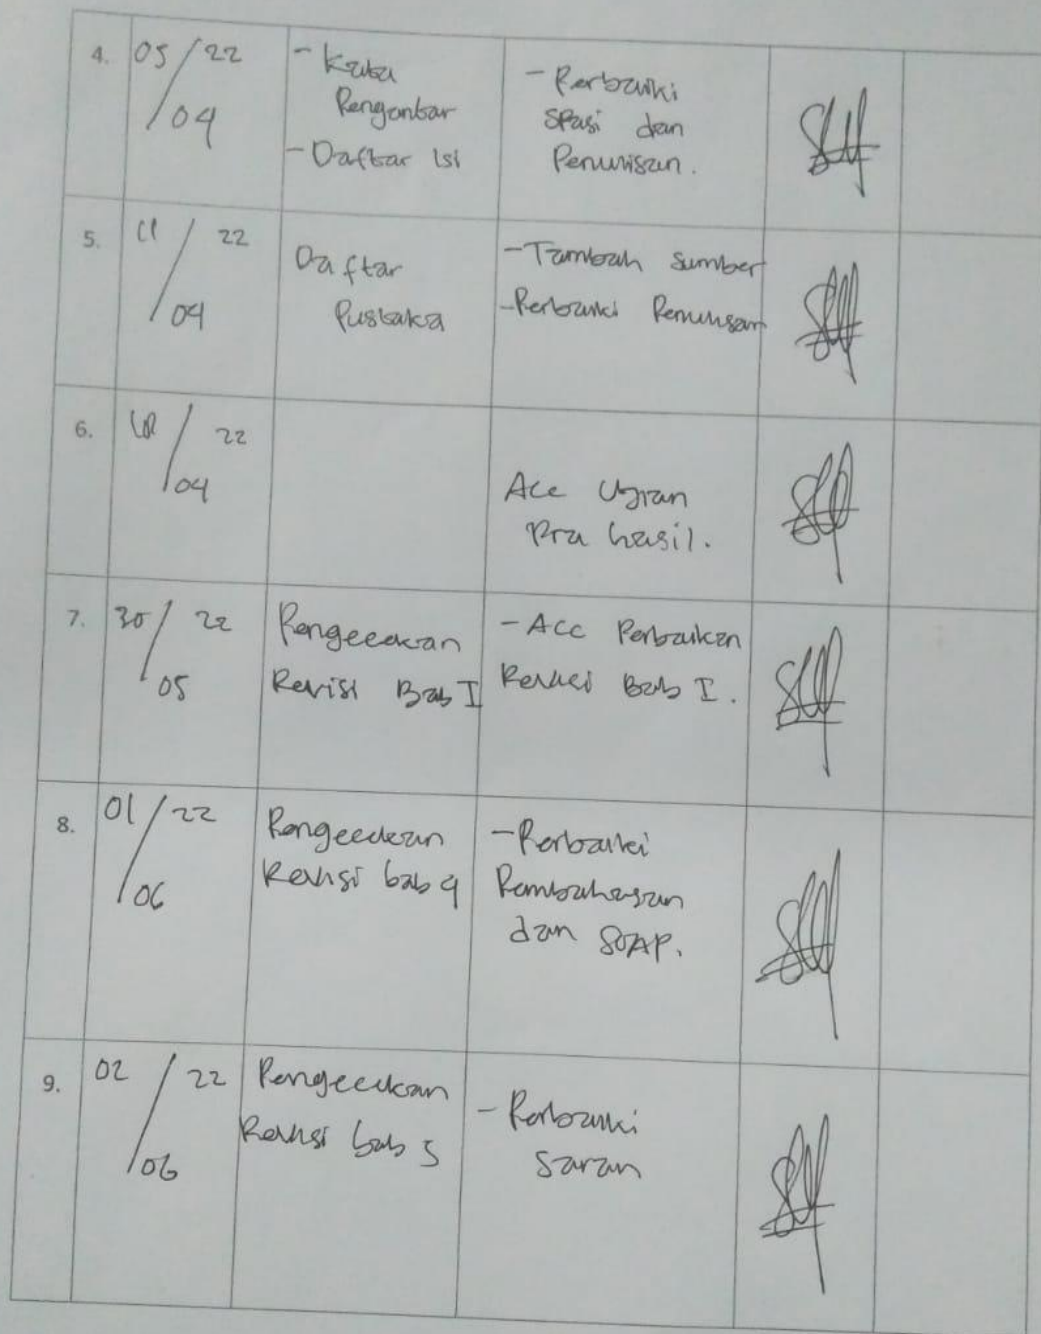 4. 05/22
/04
- Kata
Pengantar
- Daftar Isi
- Perbaiki
spasi dan
Penulisan.
5. 11/22
/04
Daftar
Pustaka
- Tambah sumber
- Perbaiki Penulisan
6. /22
/04
Acc Ujian
Pra hasil.
7. 30/22
/05
Pengecekan
Revisi Bab I
- Acc Perbaikan
Revisi Bab I.
8. 01/22
/06
Pengecekan
Revisi bab 4
- Perbaiki
Pembahasan
dan SOAP.
9. 02/22
/06
Pengecekan
Revisi bab 5
- Perbaiki
saran